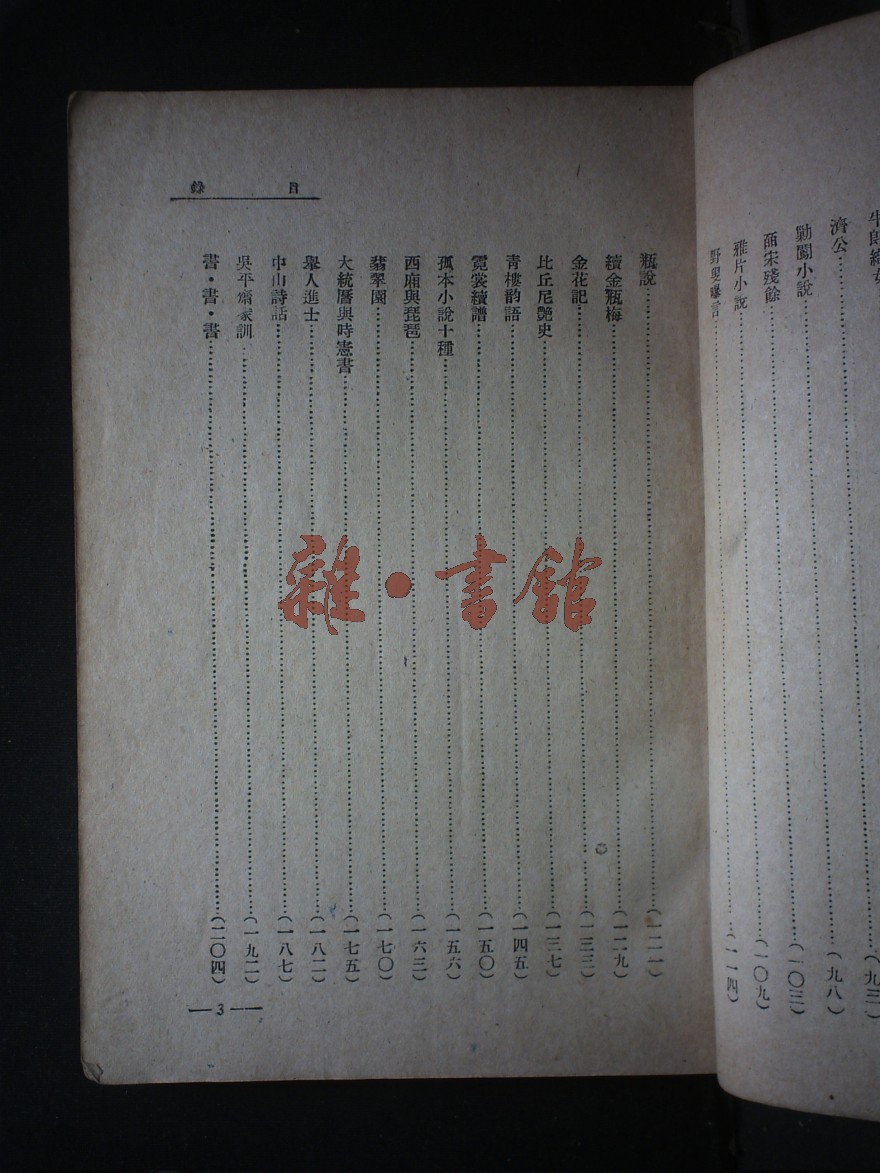 濟公……(九八)
勦闖小說……(一〇三)
南宋殘餘……(一〇九)
雅片小說
野叟曝言……(一一四)
目錄
瓶說……(一二一)
續金瓶梅……(一二九)
金花記……(一三三)
比丘尼艷史……(一三七)
青樓韵語……(一四五)
霓裳續譜……(一五〇)
孤本小說十種……(一五六)
西廂與琵琶……(一六三)
翡翠園……(一七〇)
大統曆與時憲書……(一七五)
舉人進士……(一八二)
中山詩話……(一八七)
吳平齋家訓……(一九二)
書·書·書……(二〇四)
—3—
雜·書館